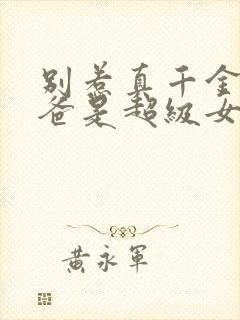 别惹真千金
爸是超级女
黄永军